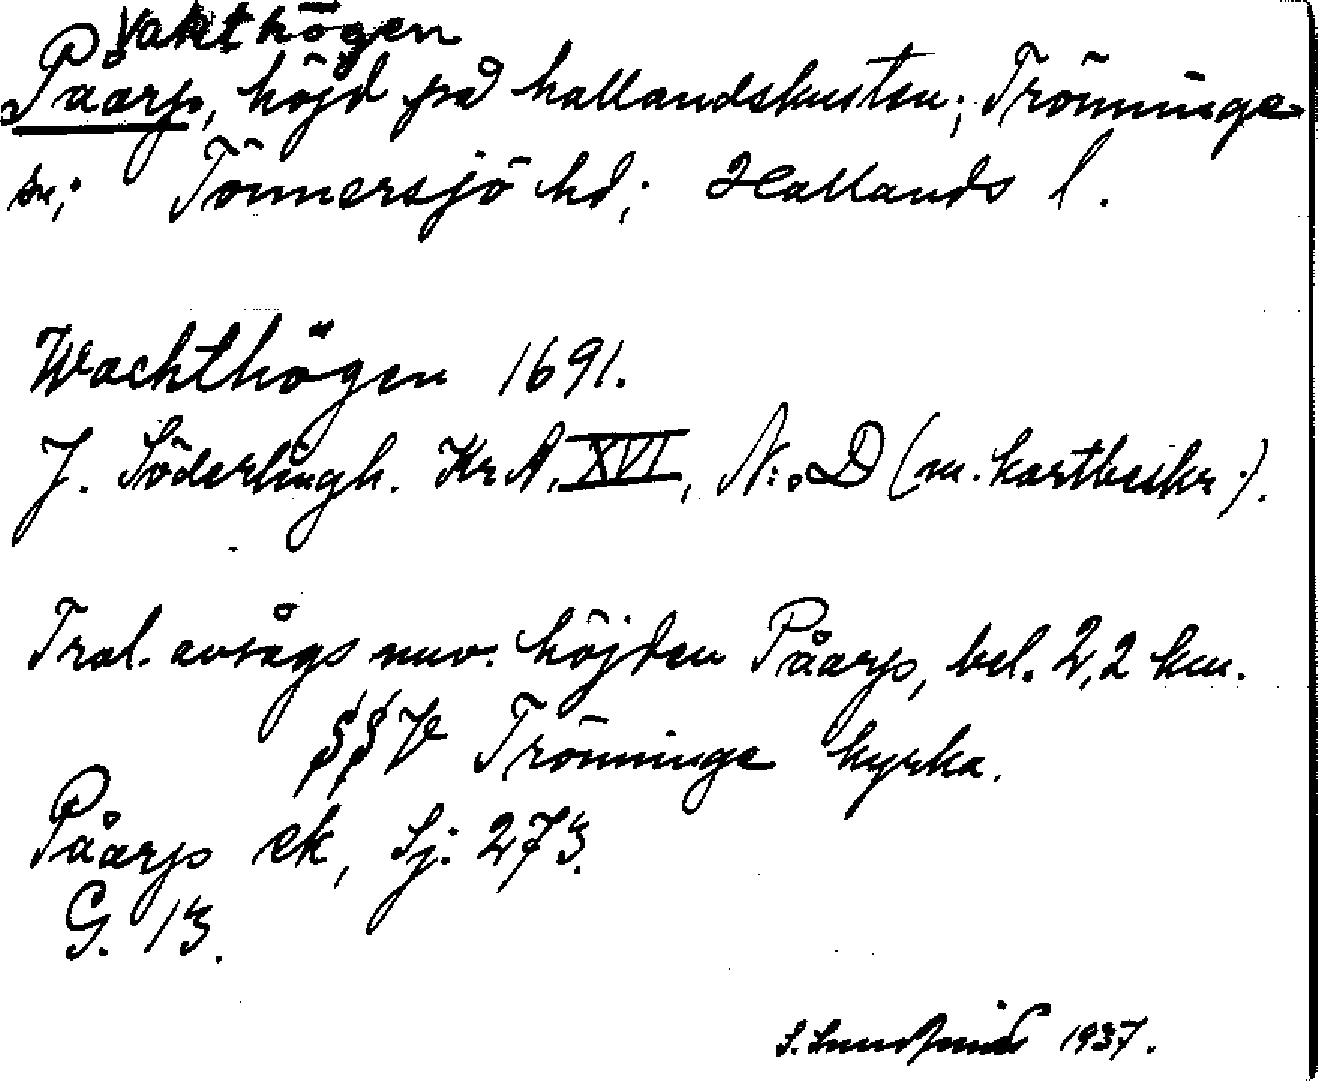 Vakthögen
Påarp, höjd på hallandskusten; Trönninge
sn; Tönnersjö hd; Hallands l.
Wachthögen 1691.
J. Söderlingh. Kr. A. XVI, N:o D (m. kartbeskr.).
Trol. avsågs nuv. höjden Påarp, bel. 2,2 km.
SSV Trönninge kyrka.
Påarp ek, Sj. 273.
G. 13.
1937.